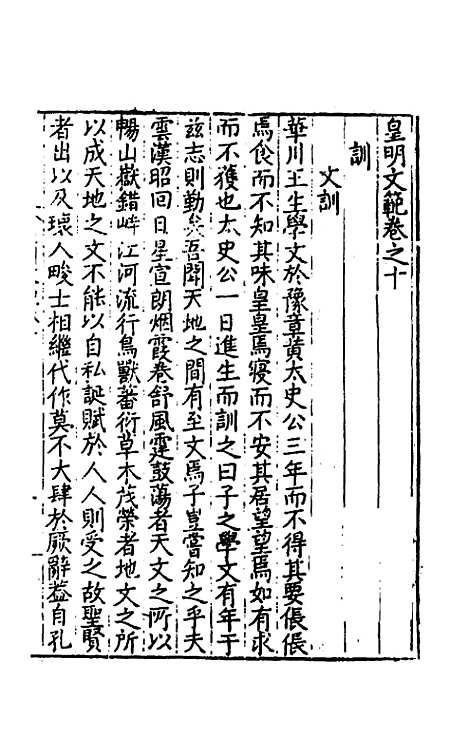 皇明文範卷之十
訓
文訓
華川王生學文於豫章黃太史公三年而不得其要倀倀
焉食而不知其味皇皇焉寢而不安其居望望焉如有求
而不獲也太史公一日進生而訓之曰子之學文有年于
兹志則勤矣吾聞天地之間有至文焉子豈嘗知之乎夫
雲漢昭回日星宣朗烟霞卷舒風霆鼓蕩者天文之所以
暢山嶽錯峙江河流行鳥獸蕃衍草木茂榮者地文之所
以成天地之文不能以自私誕賦於人人則受之故聖賢
者出以及瓌人畯士相繼代作莫不大肆於厥辭葢自孔